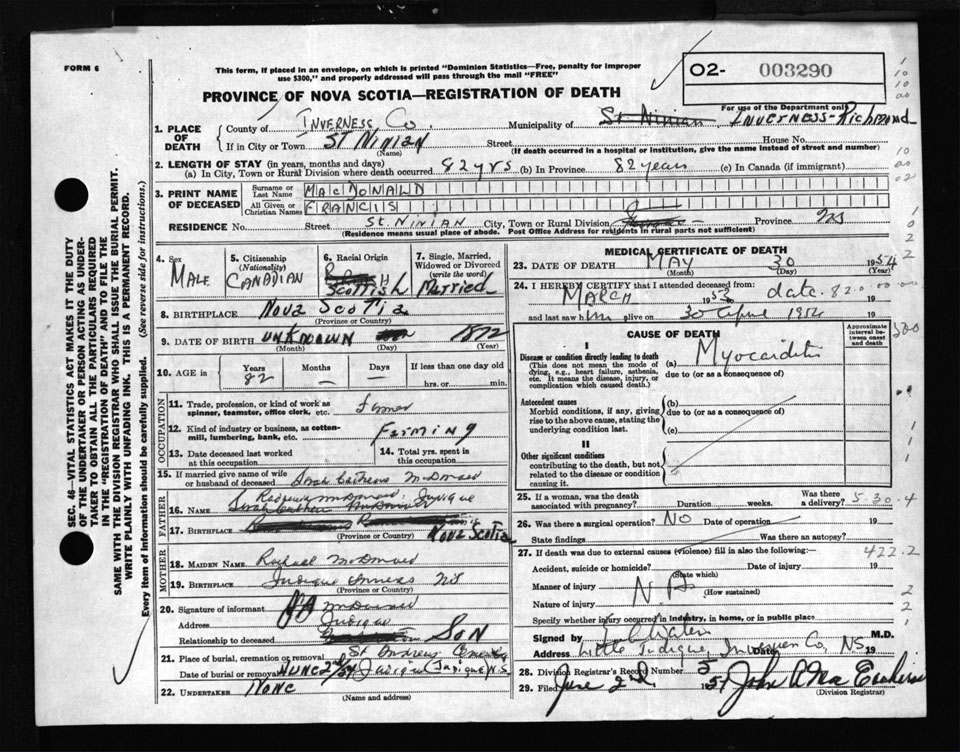 FORM 6
This form, if placed in an envelope, on which is printed "Dominion Statistics—Free, penalty for improper
use $300," and properly addressed will pass through the mail "FREE"
O2- 003290
For use of the Department only
PROVINCE OF NOVA SCOTIA—REGISTRATION OF DEATH
1. PLACE OF DEATH
County of INVERNESS Co. Municipality of St Ninian INVERNESS-Richmond
If in City or Town ST NINIAN Street House No.
(Name) (If death occurred in a hospital or institution, give the name instead of street and number)
2. LENGTH OF STAY (in years, months and days)
(a) In City, Town or Rural Division where death occurred 82 yrs (b) In Province 82 years (c) In Canada (if immigrant)
3. PRINT NAME OF DECEASED
Surname or Last Name MACDONALD
All Given or Christian Names FRANCIS
RESIDENCE No. Street ST. NINIAN City, Town or Rural Division Province NS
(Residence means usual place of abode. Post Office Address for residents in rural parts not sufficient)
4. Sex MALE
5. Citizenship (Nationality) CANADIAN
6. Racial Origin SCOTTISH
7. Single, Married, Widowed or Divorced (write the word) Married
8. BIRTHPLACE Nova Scotia
(Province or Country)
9. DATE OF BIRTH UNKNOWN 1872
(Month) (Day) (Year)
10. AGE in Years 82 Months — Days — If less than one day old hrs. or min.
OCCUPATION
11. Trade, profession, or kind of work as spinner, teamster, office clerk, etc. Farmer
12. Kind of industry or business, as cotton-mill, lumbering, bank, etc. Farming
13. Date deceased last worked at this occupation
14. Total yrs. spent in this occupation
15. If married give name of wife or husband of deceased Sarah Catherine McDonald
FATHER
16. NAME
17. BIRTHPLACE Nova Scotia
(Province or Country)
MOTHER
18. MAIDEN NAME Rachael McDonald
19. BIRTHPLACE Judique Inverness NS
20. Signature of informant McDonald
Address Judique
Relationship to deceased SON
21. Place of burial, cremation or removal St Andrews Cemetery
Date of burial or removal JUNE 2nd/54 Judique Judique N.S.
22. UNDERTAKER None
(Name and address)
MEDICAL CERTIFICATE OF DEATH
23. DATE OF DEATH MAY 30 1954
(Month) (Day) (Year)
24. I HEREBY CERTIFY that I attended deceased from:
MARCH 1953 date 82.0.00.00 19
and last saw him alive on 30 April 1954 19
CAUSE OF DEATH
Approximate interval between onset and death
I
Disease or condition directly leading to death
(This does not mean the mode of dying, e.g., heart failure, asthenia, etc. It means the disease, injury, or complication which caused death.)
(a) Myocarditis
due to (or as a consequence of)
Antecedent causes
Morbid conditions, if any, giving rise to the above cause, stating the underlying condition last.
(b)
due to (or as a consequence of)
(c)
II
Other significant conditions
contributing to the death, but not related to the disease or condition causing it.
25. If a woman, was the death associated with pregnancy? Duration weeks. Was there a delivery? 5.30.4
26. Was there a surgical operation? NO Date of operation 19
State findings Was there an autopsy?
27. If death was due to external causes (violence) fill in also the following:— 422.2
Accident, suicide or homicide? Date of injury 19
(State which)
Manner of injury
(How sustained)
Nature of injury N.A
Specify whether injury occurred in industry, in home, or in public place
Signed by M.D.
Address Little Judique, Co, NS. Date 19
28. Division Registrar's Record Number 5
29. Filed June 2nd 1954 John A
(Division Registrar)
SEC. 46—VITAL STATISTICS ACT MAKES IT THE DUTY
OF THE UNDERTAKER OR PERSON ACTING AS UNDER-
TAKER TO OBTAIN ALL THE PARTICULARS REQUIRED
IN THE "REGISTRATION OF DEATH" AND TO FILE THE
SAME WITH THE DIVISION REGISTRAR WHO SHALL ISSUE THE BURIAL PERMIT.
WRITE PLAINLY WITH UNFADING INK. THIS IS A PERMANENT RECORD.
Every item of information should be carefully supplied. (See reverse side for instructions.)